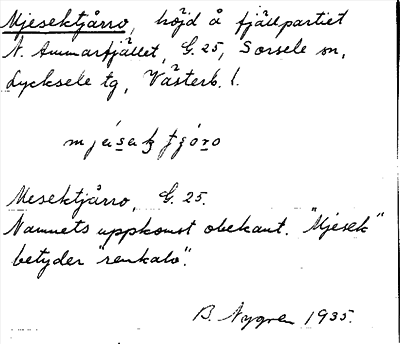 Mjesektjårro, höjd å fjällpartiet
N. Ammarfjället, G. 25, Sorsele sn,
Lycksele tg, Västerb. l.
mjásak tjóro
Mesektjårro, G. 25.
Namnets uppkomst obekant. "Mjesek"
betyder "renkalv".
B. Nygren 1935.